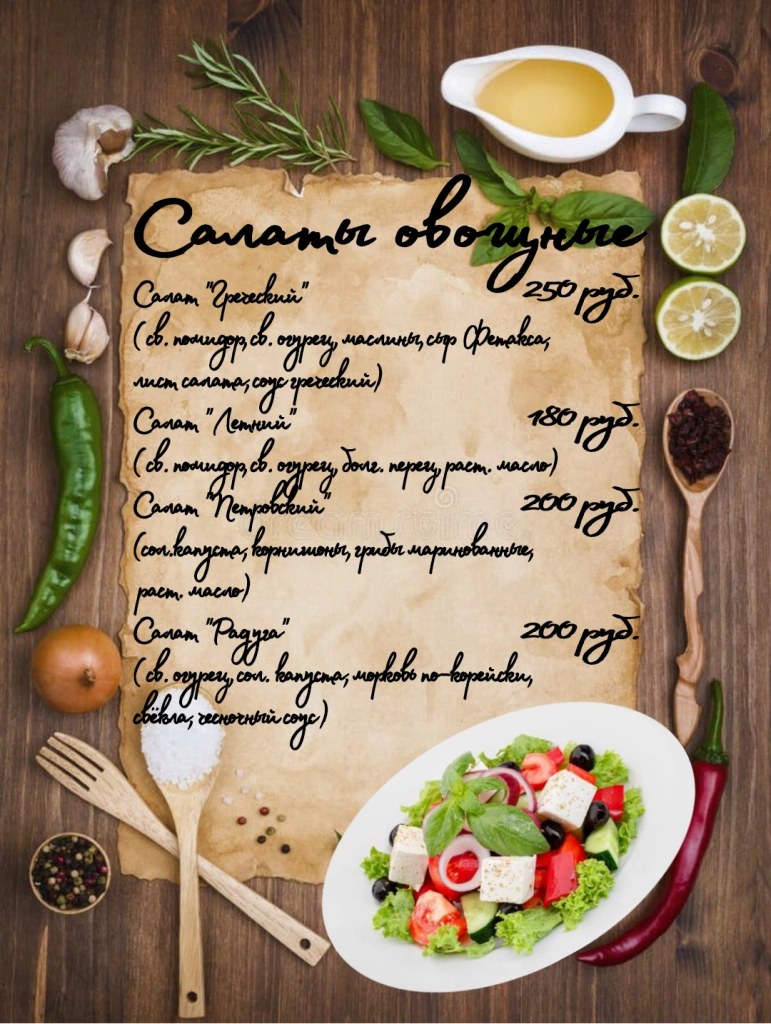 Салаты овощные
Салат "Греческий" 250 руб.
( св. помидор, св. огурец, маслины, сыр Фетакса,
лист салата, соус греческий)
Салат "Летний" 180 руб.
( св. помидор, св. огурец, болг. перец, раст. масло)
Салат "Петровский" 200 руб.
(сол.капуста, корнишоны, грибы маринованные,
раст. масло)
Салат "Радуга" 200 руб.
( св. огурец, сол. капуста, морковь по-корейски,
свёкла, чесночный соус)